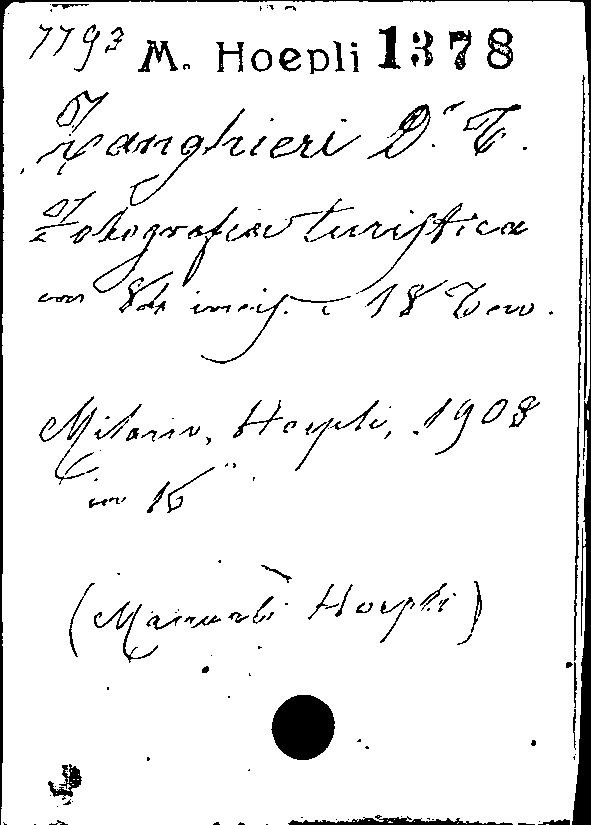 7793 M. Hoepli 1378
Zanghieri D.r T.
Fotografia turistica
con 84 incis. e 18 Tav.
Milano, Hoepli, 1908
in 16°
(Manuali Hoepli)